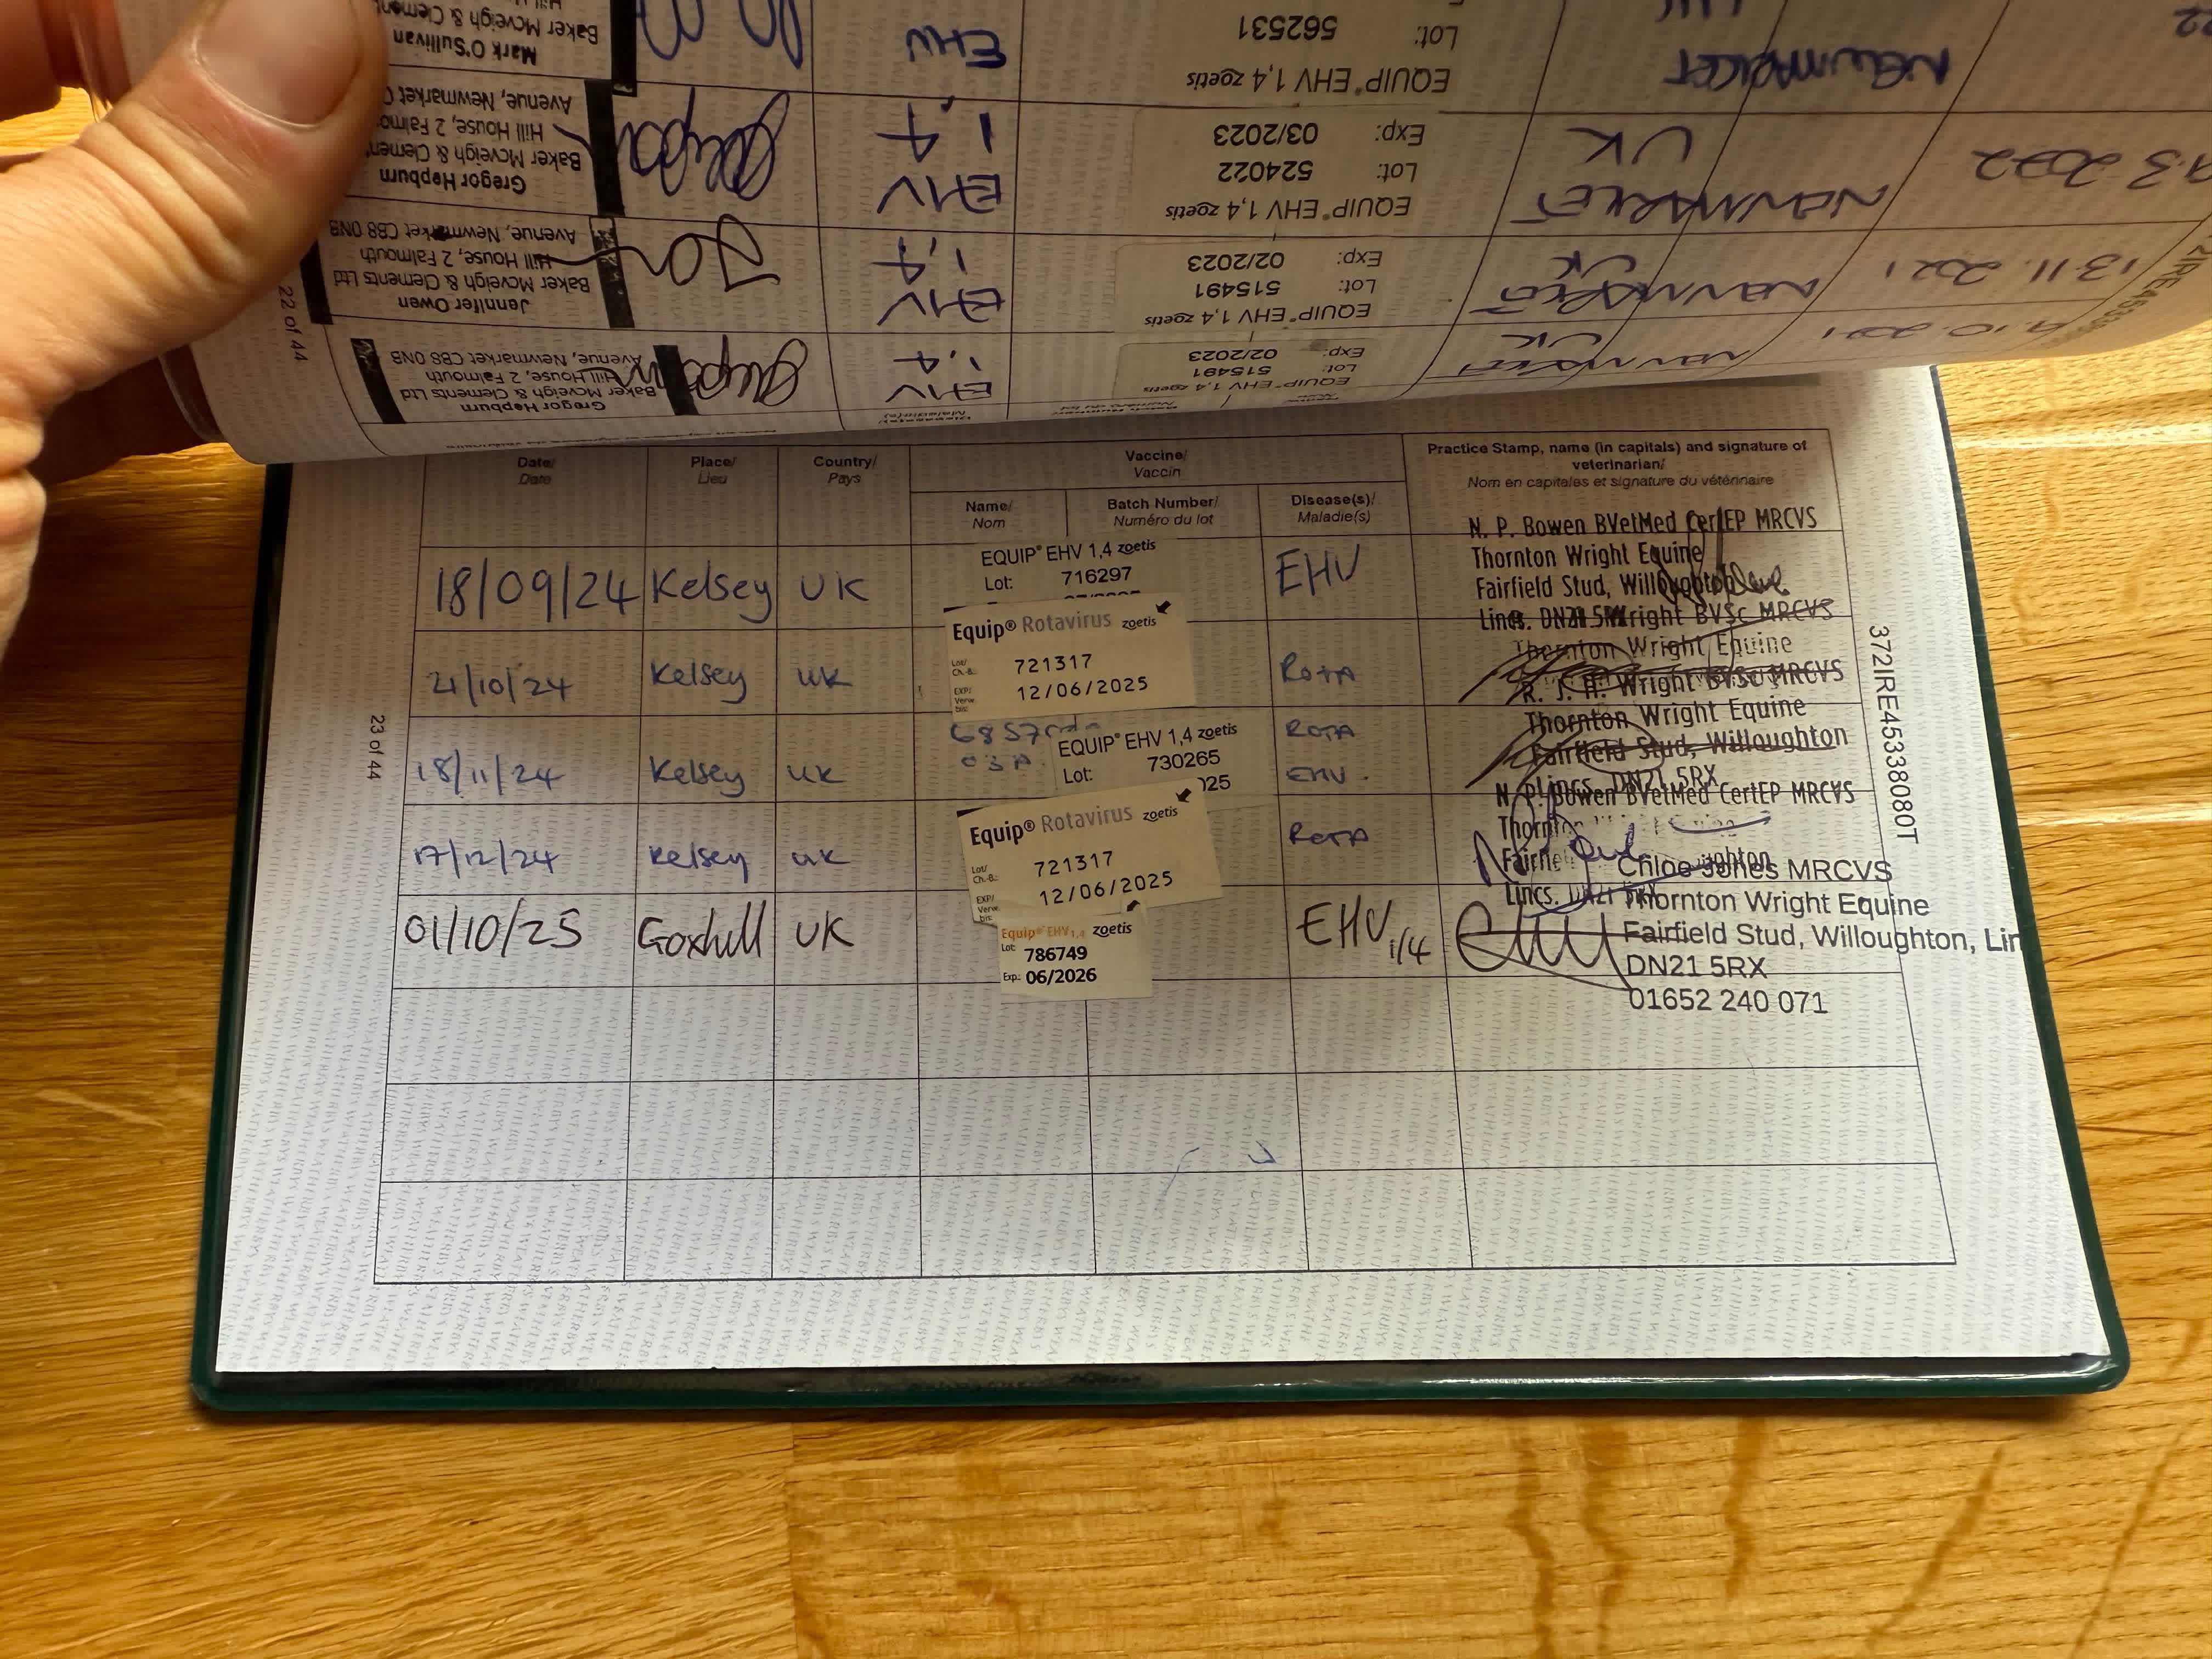 Mark O'Sullivan
Baker Mcveigh & Clement
EHV
EQUIP® EHV 1,4 zoetis
Lot: 562531
NEWMARKET
UK
Gregor Hepburn
Baker Mcveigh & Clement
Hill House, 2 Falmo
Avenue, Newmarket C
EHV
1,4
EQUIP® EHV 1,4 zoetis
Lot: 524022
Exp: 03/2023
NEWMARKET
UK
3 2022
Jennifer Owen
Baker Mcveigh & Clements Ltd
Hill House, 2 Falmouth
Avenue, Newmarket CB8 0NB
EHV
1,4
EQUIP® EHV 1,4 zoetis
Lot: 515491
Exp: 02/2023
NEWMARKET
UK
13 11. 2021
Gregor Hepburn
Baker Mcveigh & Clements Ltd
Hill House, 2 Falmouth
Avenue, Newmarket CB8 0NB
EHV
1,4
EQUIP® EHV 1,4 zoetis
Lot: 515491
Exp: 02/2023
NEWMARKET
UK
10. 2021
22 of 44
Date/
Date
Place/
Lieu
Country/
Pays
Vaccine/
Vaccin
Name/
Nom
Batch Number/
Numéro du lot
Disease(s)/
Maladie(s)
Practice Stamp, name (in capitals) and signature of
veterinarian/
Nom en capitales et signature du vétérinaire
18/09/24 Kelsey UK
EQUIP® EHV 1,4 zoetis
Lot: 716297
EHV
N. P. Bowen BVetMed CertEP MRCVS
Thornton Wright Equine
Fairfield Stud, Willoughton
Lincs. DN21 5RX
21/10/24 Kelsey UK
Equip® Rotavirus zoetis
Lot/ Ch.-B.: 721317
EXP/ Verw. bis: 12/06/2025
ROTA
Wright BVSc MRCVS
Thornton Wright Equine
18/11/24 Kelsey UK
EQUIP® EHV 1,4 zoetis
Lot: 730265
025
ROTA
EHV.
R. J. H. Wright BVSc MRCVS
Thornton Wright Equine
Fairfield Stud, Willoughton
Lincs. DN21 5RX
17/12/24 Kelsey UK
Equip® Rotavirus zoetis
Lot/ Ch.-B.: 721317
EXP/ Verw. bis: 12/06/2025
ROTA
N. P. Bowen BVetMed CertEP MRCVS
01/10/25 Goxhill UK
Equip® EHV 1,4 zoetis
Lot: 786749
Exp.: 06/2026
EHV 1/4
Chloe Jones MRCVS
Thornton Wright Equine
Fairfield Stud, Willoughton, Lin
DN21 5RX
01652 240 071
23 of 44
372IRE45338080T